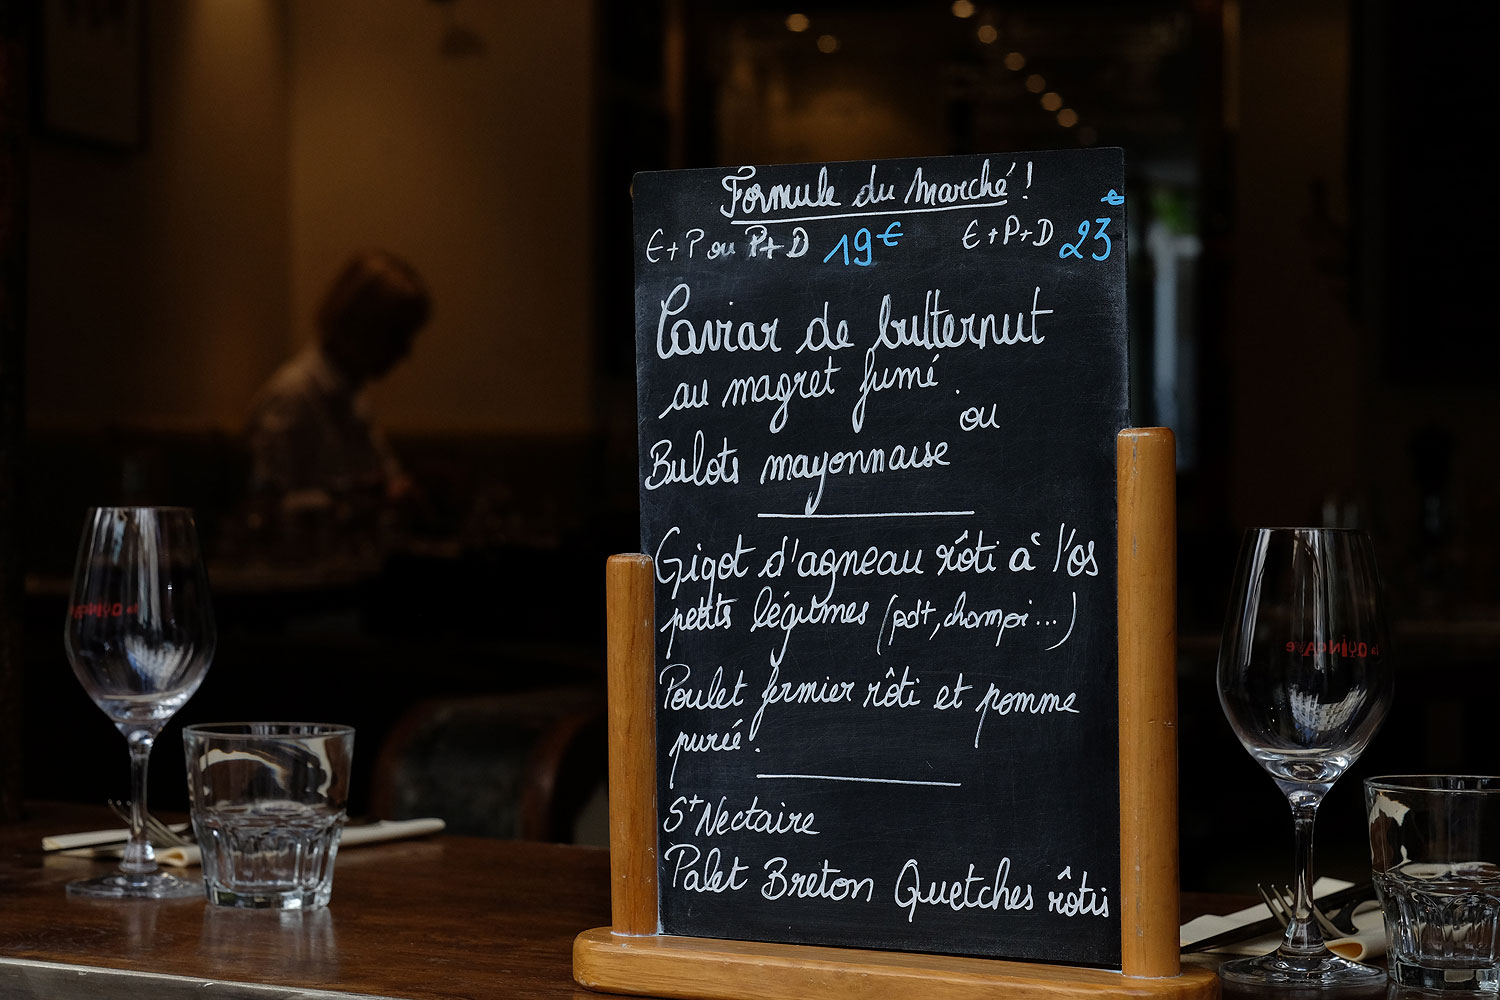 Formule du Marché !
E+P ou P+D 19€ E+P+D 23€
Caviar de butternut
au magret fumé.
ou
Bulots mayonnaise
Gigot d'agneau rôti à l'os
petits légumes (pdt, champi...)
Poulet fermier rôti et pomme
purée.
St Nectaire
Palet Breton Quetches rôtis